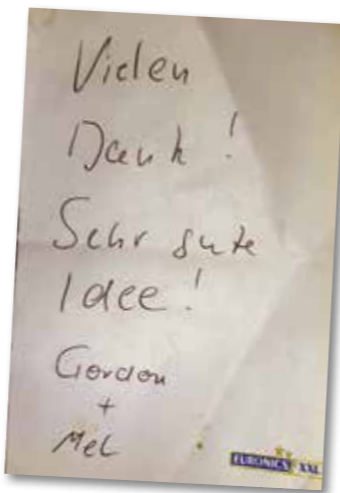 Vielen
Dank!
Sehr gute
Idee!
Gordon
+
Mel
EURONICS XXL